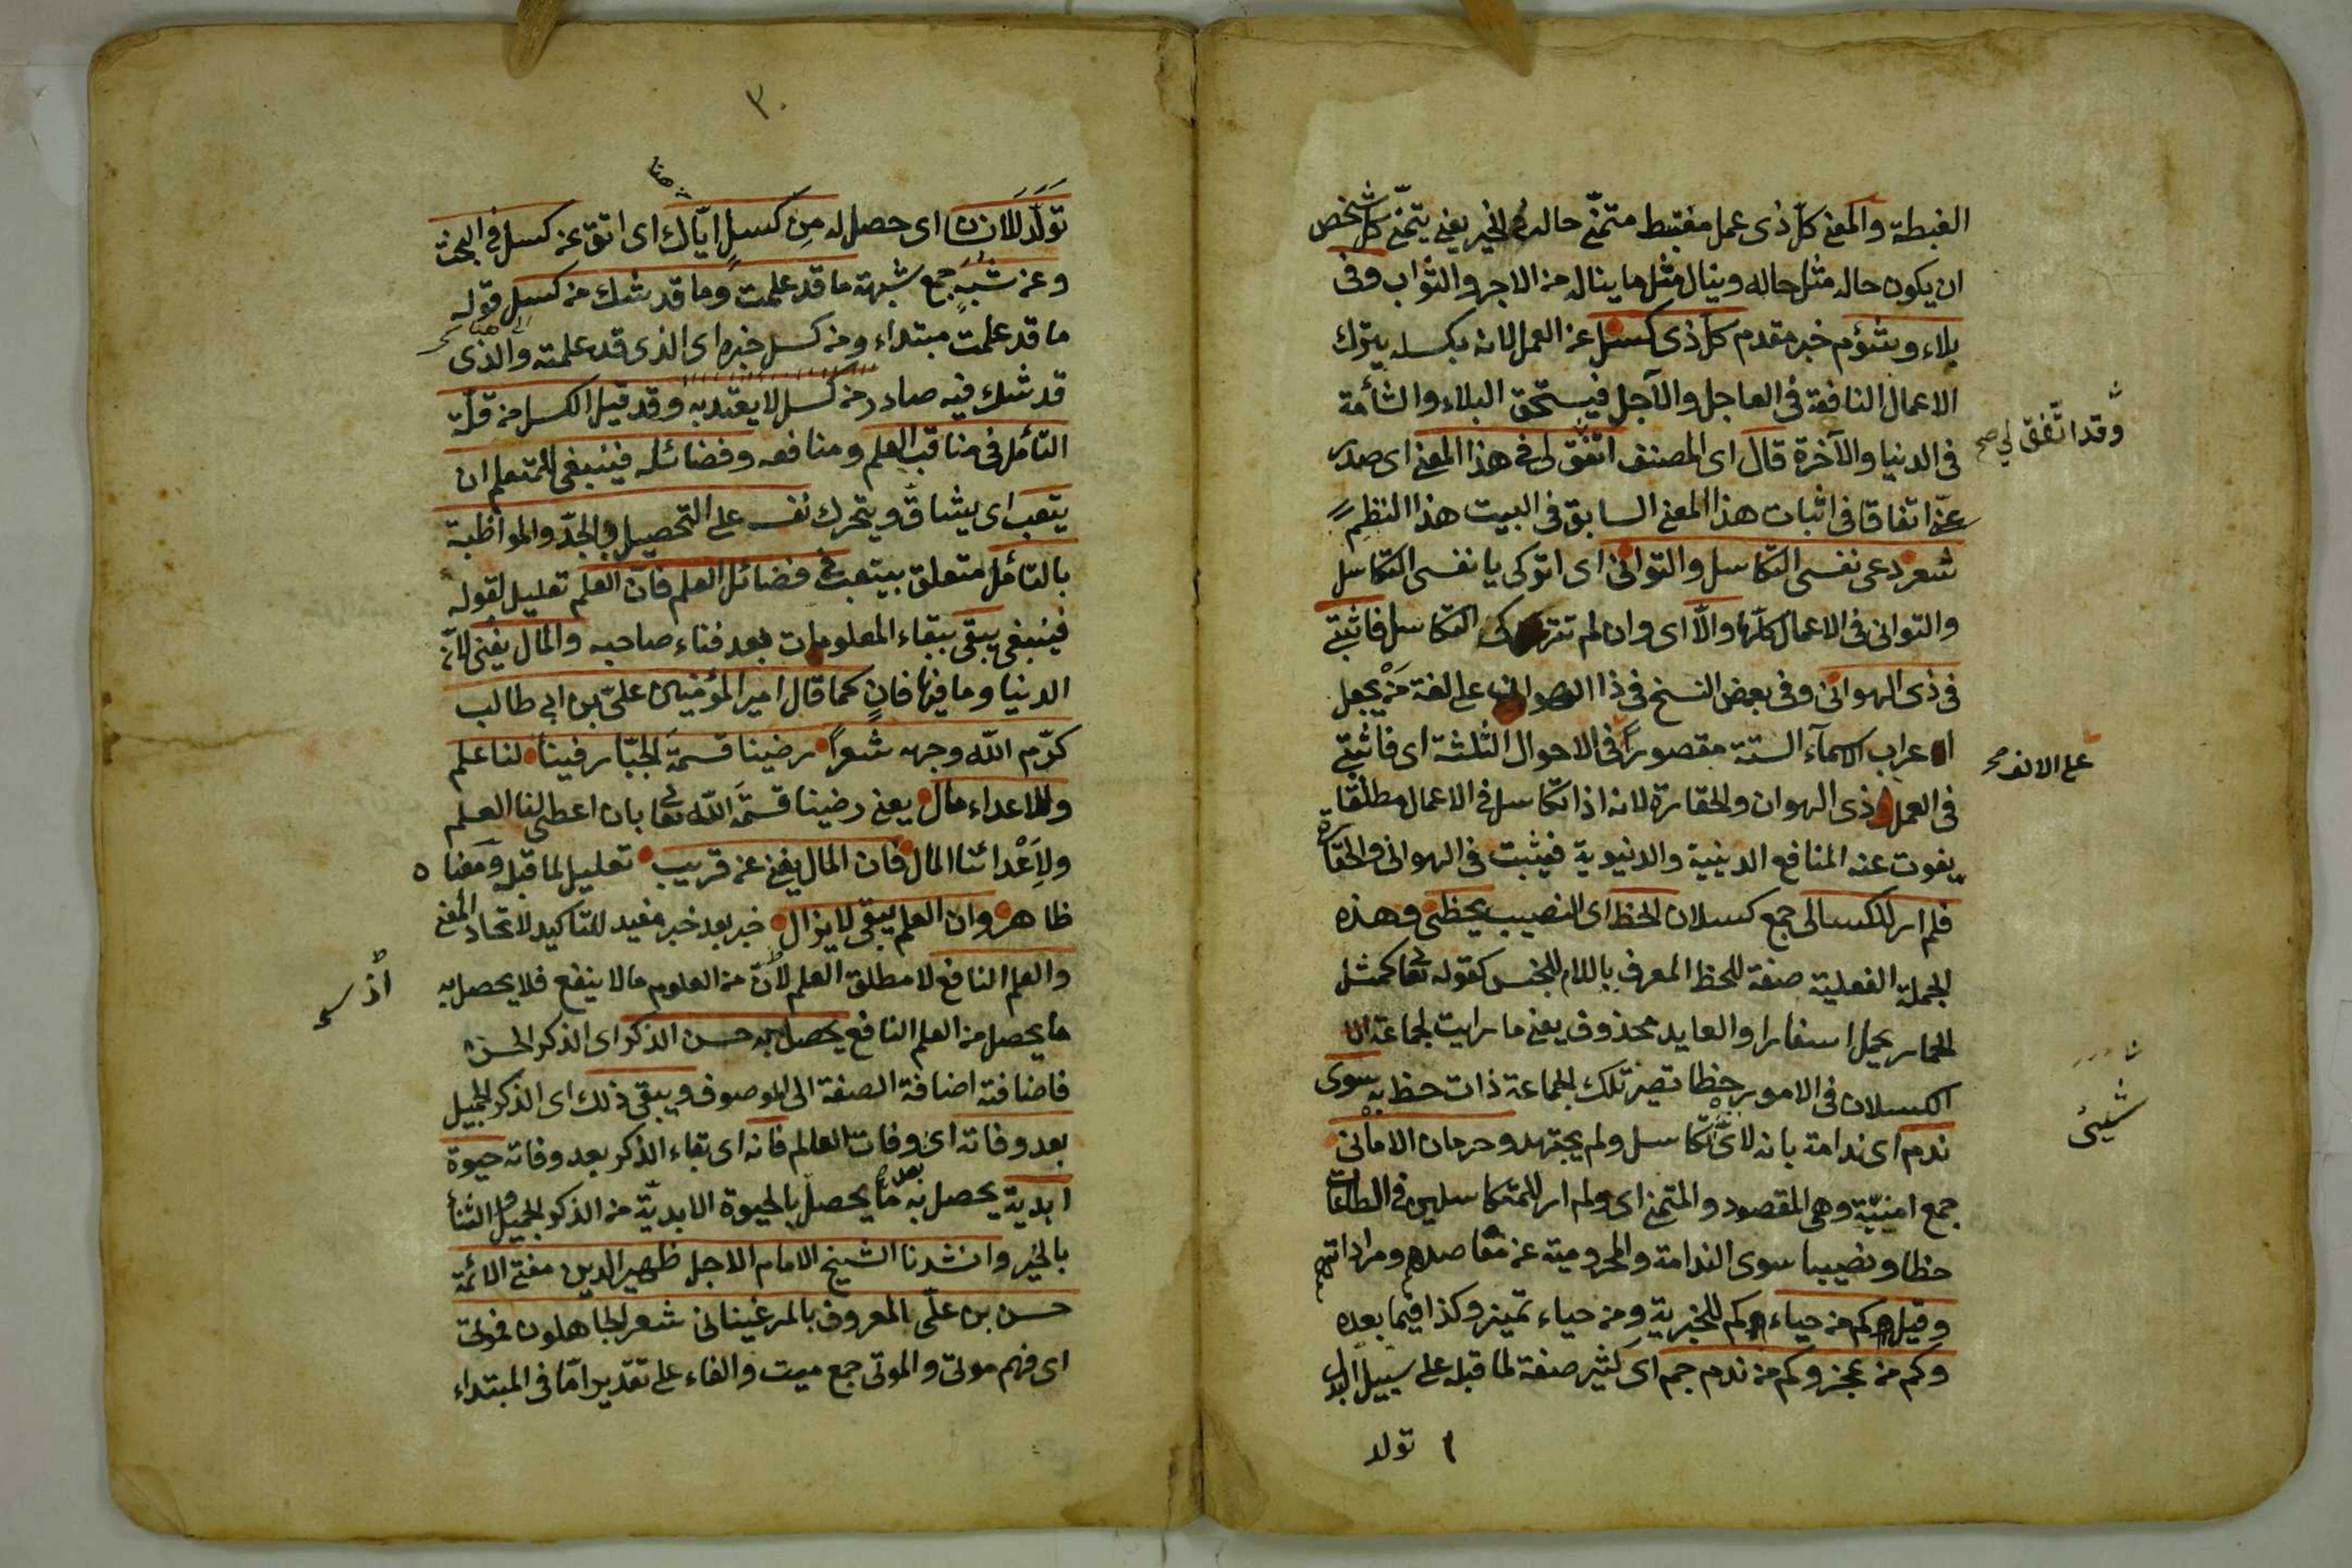 الغبطة والمعنى كلّ ذى عمل مغتبط متمنّى حاله فى الخير يعنى يتمنّى كل شخص
ان يكون حاله مثل حاله وينال مثل ما يناله من الاجر والثواب وفى
بلاء وشؤم خبر مقدم كلّ ذى كسل عن العمل لانه بكسله يترك
الاعمال النافعة فى العاجل والآجل فيستحق البلاء والشأمة
فى الدنيا والآخرة قال اى المصنف اتفق لى فى هذا المعنى اى صدر
وقد اتّفق لي صح
عنّى اتفاقا فى اثبات هذا المعنى السابق فى البيت هذا النظم
شعر دعى نفسى التكاسل والتوانى اى اتركى يا نفسى التكاسل
والتوانى فى الاعمال كلّها والّا اى وان لم تتركى التكاسل فاثبتى
فى ذى الهوانى وفى بعض النسخ فى ذا الهوان على لغة من يجعل
اعراب الاسمآء الستة مقصوراً فى الاحوال الثلثة اى فاثبتى
على الالف صح
فى العمل ذى الهوان والحقارة لانه اذا تكاسل فى الاعمال مطلقا
يفوت عنه المنافع الدينية والدنيوية فيثبت فى الهوانى والحقارة
فلم ار للكسالى جمع كسلان الحظ اى النصيب يحظى وهذه
الجملة الفعلية صفة للحظ المعرف باللام للجنس كقوله تعا كمثل
الحمار يحمل اسفارا والعايد محذوف يعنى ما رايت لجماعة
الكسلان فى الامور حظا تصير تلك الجماعة ذات حظ به سوى
شيئ
ندم اى ندامة بانه لاىّ تكاسل ولم يجتهد وحرمان الامانى
جمع امنيّة وهى المقصود والمتمنى اى ولم ار للمتكاسلين فى الطاعات
حظا ونصيبا سوى الندامة والمحرومية عن مقاصدهم ومراداتهم
وقيل كم من حياء كم للخبرية ومن حياء تميز وكذا فيما بعده
وكم من عجز وكم من ندم جم اى كثير صفة لما قبله على سبيل البدل
تولد
٣٠
تولّد للانسان اى حصل له من كسل ايّاك اى اتق عن كسل فى البحث
وعن شبه جمع شبهة ما قد علمت وما قد شك من كسل قوله
ما قد علمت مبتداء ومن كسل خبره اى الذى قد علمته والذى
قد شك فيه صادر من كسل لا يعتد به وقد قيل الكسل من قلّة
التأمل فى مناقب العلم ومنافعه وفضائله فينبغى للمتعلم ان
يتعب اى يشاقّ ويتحرك نفسه على التحصيل والجدّ والمواظبة
بالتأمل متعلق بيتعب فى فضائل العلم فان العلم تعليل لقوله
فينبغى يبقى ببقاء المعلومات بعد فناء صاحبه والمال يفنى لانّ
الدنيا وما فيها فانٍ كما قال امير المؤمنين علىّ بن ابى طالب
كرّم الله وجهه شعراً رضينا قسمة الجبّار فينا لنا علم
وللاعداء مال يعنى رضينا قسمة الله تعا بان اعطى لنا العلم
ولِاَعْدائنا المال فان المال يفنى عن قريب تعليل لما قبله ومعناه
ظاهر وان العلم يبقى لا يزال خبر بعد خبر مفيد للتاكيد لاتحاد المعنى
والعلم النافع لا مطلق العلم لانّ من العلوم ما لا ينفع فلا يحصل به
ما يحصل من العلم النافع يحصل به حسن الذكر اى الذكر الحسن
فاضافته اضافة الصفة الى الموصوف ويبقى ذلك اى الذكر الجميل
بعد وفاته اى وفات العالم فانه اى بقاء الذكر بعد وفاته حيوة
ابدية يحصل به بعده ما يحصل بالحيوة الابديّة من الذكر الجميل والثنأ
بالخير وانشدنا الشيخ الامام الاجل ظهير الدين مفتى الائمة
حسن بن علّى المعروف بالمرغينانى شعر الجاهلون فموتى
اى فهم موتى والموتى جمع ميت والفاء على تقدير امّا فى المبتداء